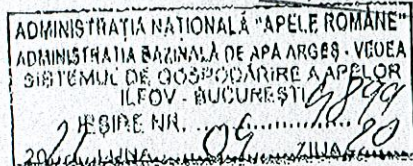 ADMINISTRAȚIA NAȚIONALĂ "APELE ROMÂNE"
ADMINISTRAȚIA BAZINALĂ DE APĂ ARGEȘ - VEDEA
SISTEMUL DE GOSPODĂRIRE A APELOR
ILFOV - BUCUREȘTI
IEȘIRE NR. 4899
20 21 LUNA 04 ZIUA 20